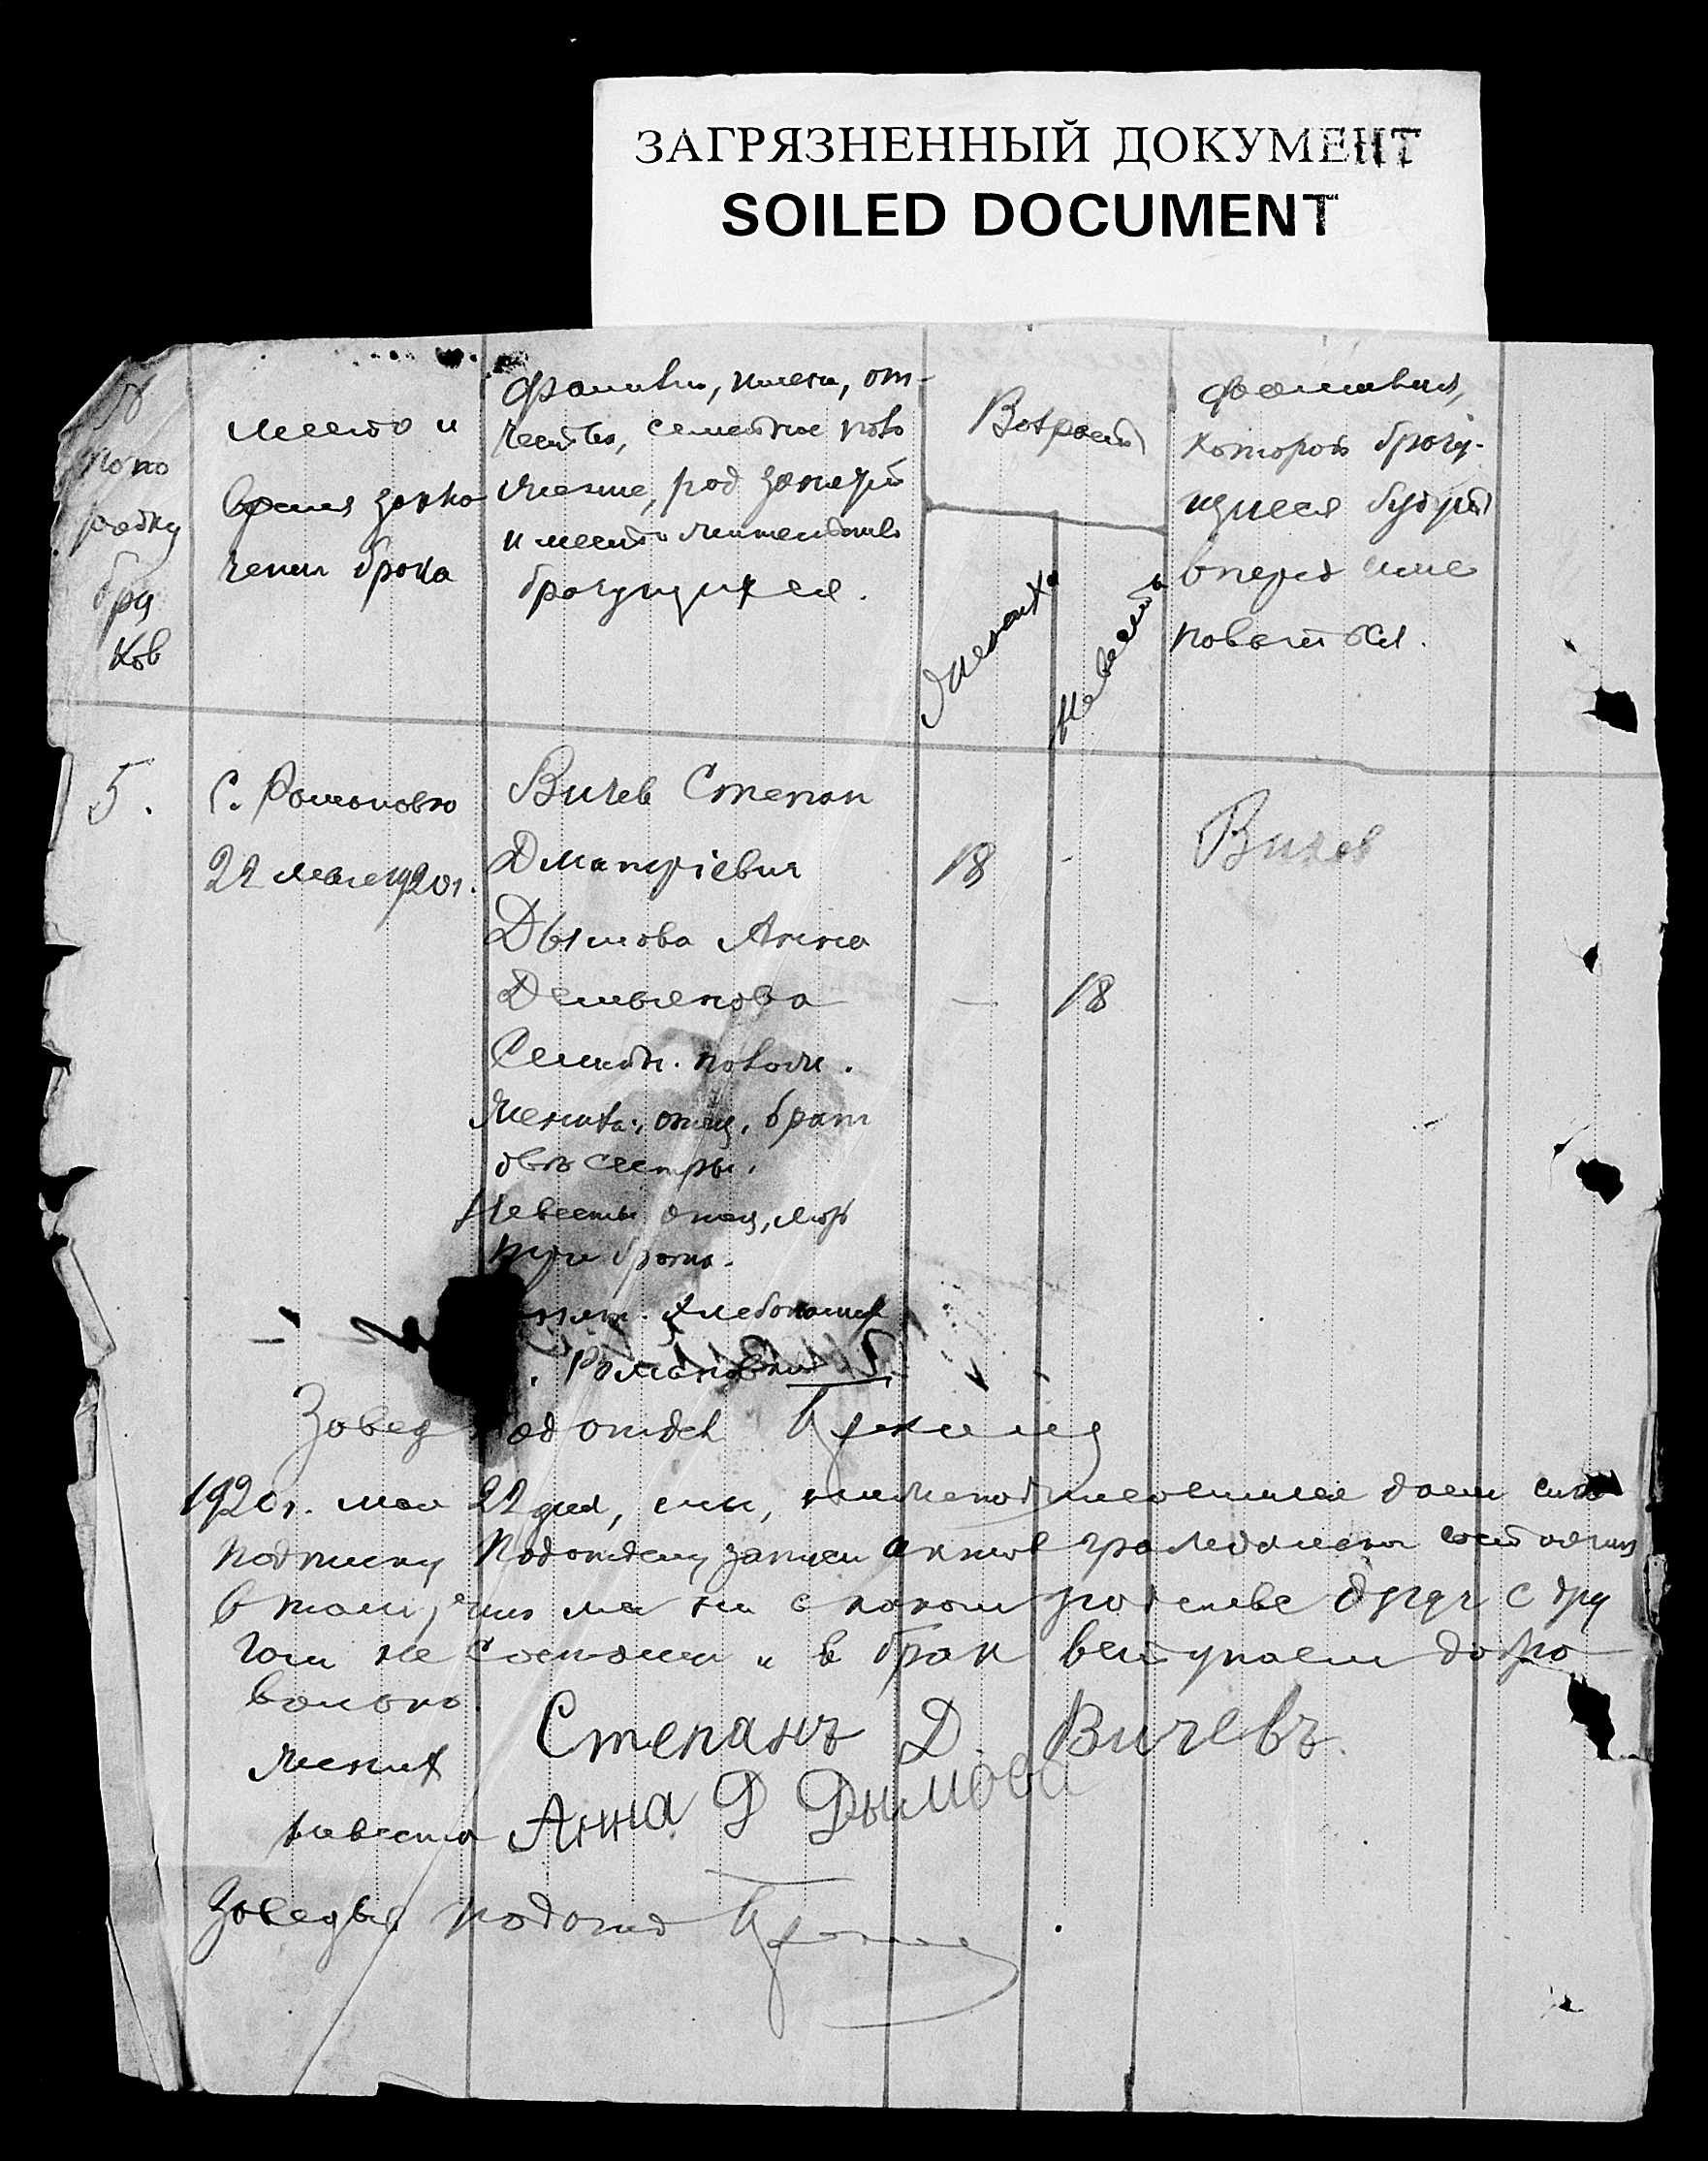 ЗАГРЯЗНЕННЫЙ ДОКУМЕНТ
SOILED DOCUMENT
№
по по
рядку
бра
ков
место и
время заклю
чения брака
Фамилия, имена, от-
чества, семейное поло
жение, род занятий
и место жительства
брачущихся.
Возраст
жениха
невесты
Фамилия,
которой брачу-
щиеся будут
впредь име
новаться.
5.
С. Романовка
22 мая 1920 г.
Вичев Степан
Дмитріевич
18
-
Вичев
Дымова Анна
Демьянова
—
18
Семейн. полож.
Жениха: отец, брат
две сестры.
Невесты отец, мать
три брата.
занят. хлебопашец
. Романовки
Завед подотдел
1920 г. мая 22 дня, мы, нижеподписавшиеся даем сию
подписку Подотделу записи актов гражданского состояния
в том, что мы ни в каком родстве друг с дру
гом не состоим и в брак вступаем добро
вольно.
жених Степанъ Д. Вичевъ.
невеста Анна Д Дымова
Заведыв. подотд